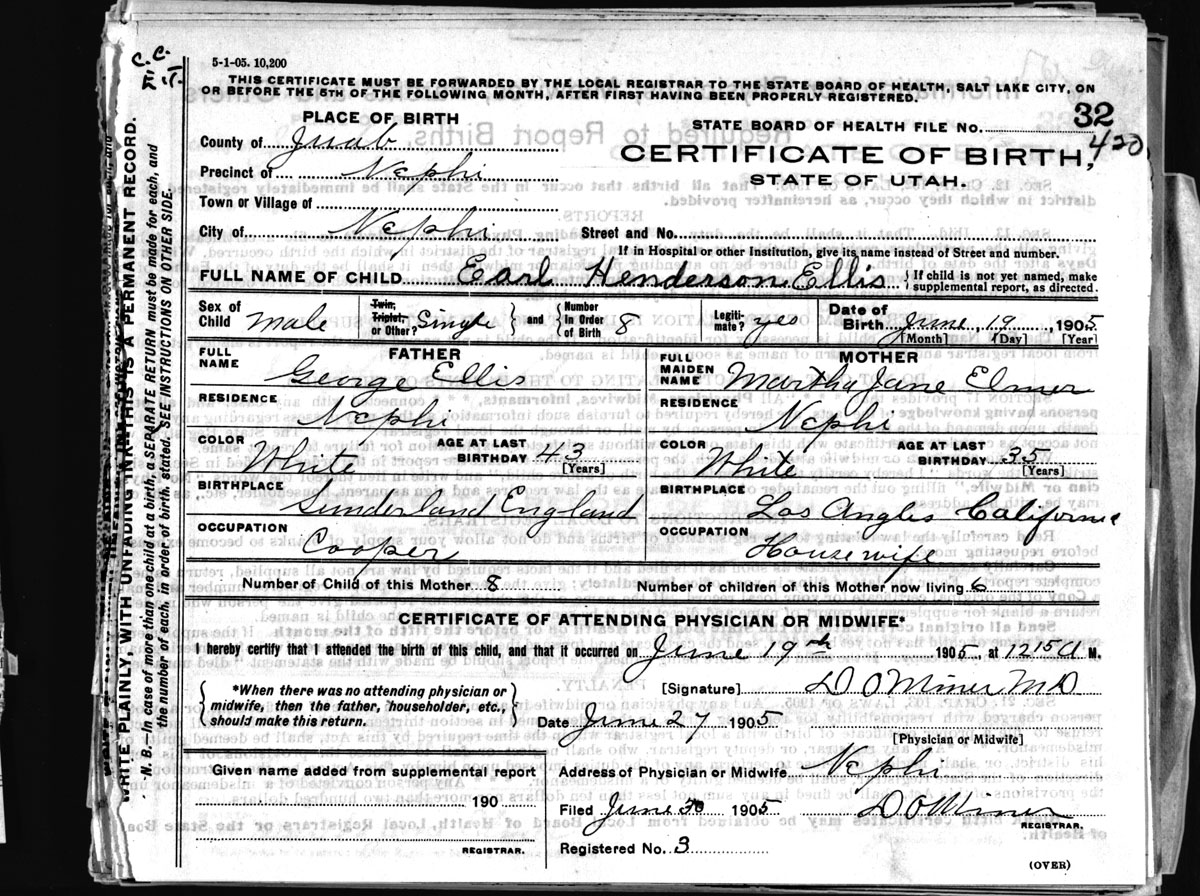 C.C.
5-1-05. 10,200
THIS CERTIFICATE MUST BE FORWARDED BY THE LOCAL REGISTRAR TO THE STATE BOARD OF HEALTH, SALT LAKE CITY, ON
OR BEFORE THE 5TH OF THE FOLLOWING MONTH, AFTER FIRST HAVING BEEN PROPERLY REGISTERED.
WRITE PLAINLY, WITH UNFADING INK—THIS IS A PERMANENT RECORD.
N. B.—In case of more than one child at a birth, a SEPARATE RETURN must be made for each, and
the number of each, in order of birth, stated. SEE INSTRUCTIONS ON OTHER SIDE.
PLACE OF BIRTH
STATE BOARD OF HEALTH FILE NO. 32
420
County of Juab
CERTIFICATE OF BIRTH,
Precinct of Nephi
STATE OF UTAH.
Town or Village of
City of Nephi Street and No.
If in Hospital or other Institution, give its name instead of Street and number.
FULL NAME OF CHILD Earl Henderson Ellis { If child is not yet named, make
supplemental report, as directed.
Sex of Child Male Twin, Triplet, or Other? Single } and { Number In Order of Birth 8 Legiti-mate? yes Date of Birth June 19, 1905
[Month] [Day] [Year]
FATHER MOTHER
FULL NAME George Ellis FULL MAIDEN NAME Martha Jane Elmer
RESIDENCE Nephi RESIDENCE Nephi
COLOR White AGE AT LAST BIRTHDAY 43 [Years] COLOR White AGE AT LAST BIRTHDAY 35 [Years]
BIRTHPLACE Sunderland England BIRTHPLACE Los Angles California
OCCUPATION Cooper OCCUPATION Housewife
Number of Child of this Mother 8 Number of children of this Mother now living 6
CERTIFICATE OF ATTENDING PHYSICIAN OR MIDWIFE*
I hereby certify that I attended the birth of this child, and that it occurred on June 19th 1905, at 1215 A M.
{ *When there was no attending physician or
midwife, then the father, householder, etc.,
should make this return. }
[Signature] D O Miner MD
Date June 27 1905
[Physician or Midwife]
Given name added from supplemental report
Address of Physician or Midwife Nephi
190
Filed June 30 1905 D O Miner
REGISTRAR.
REGISTRAR.
Registered No. 3
(OVER)